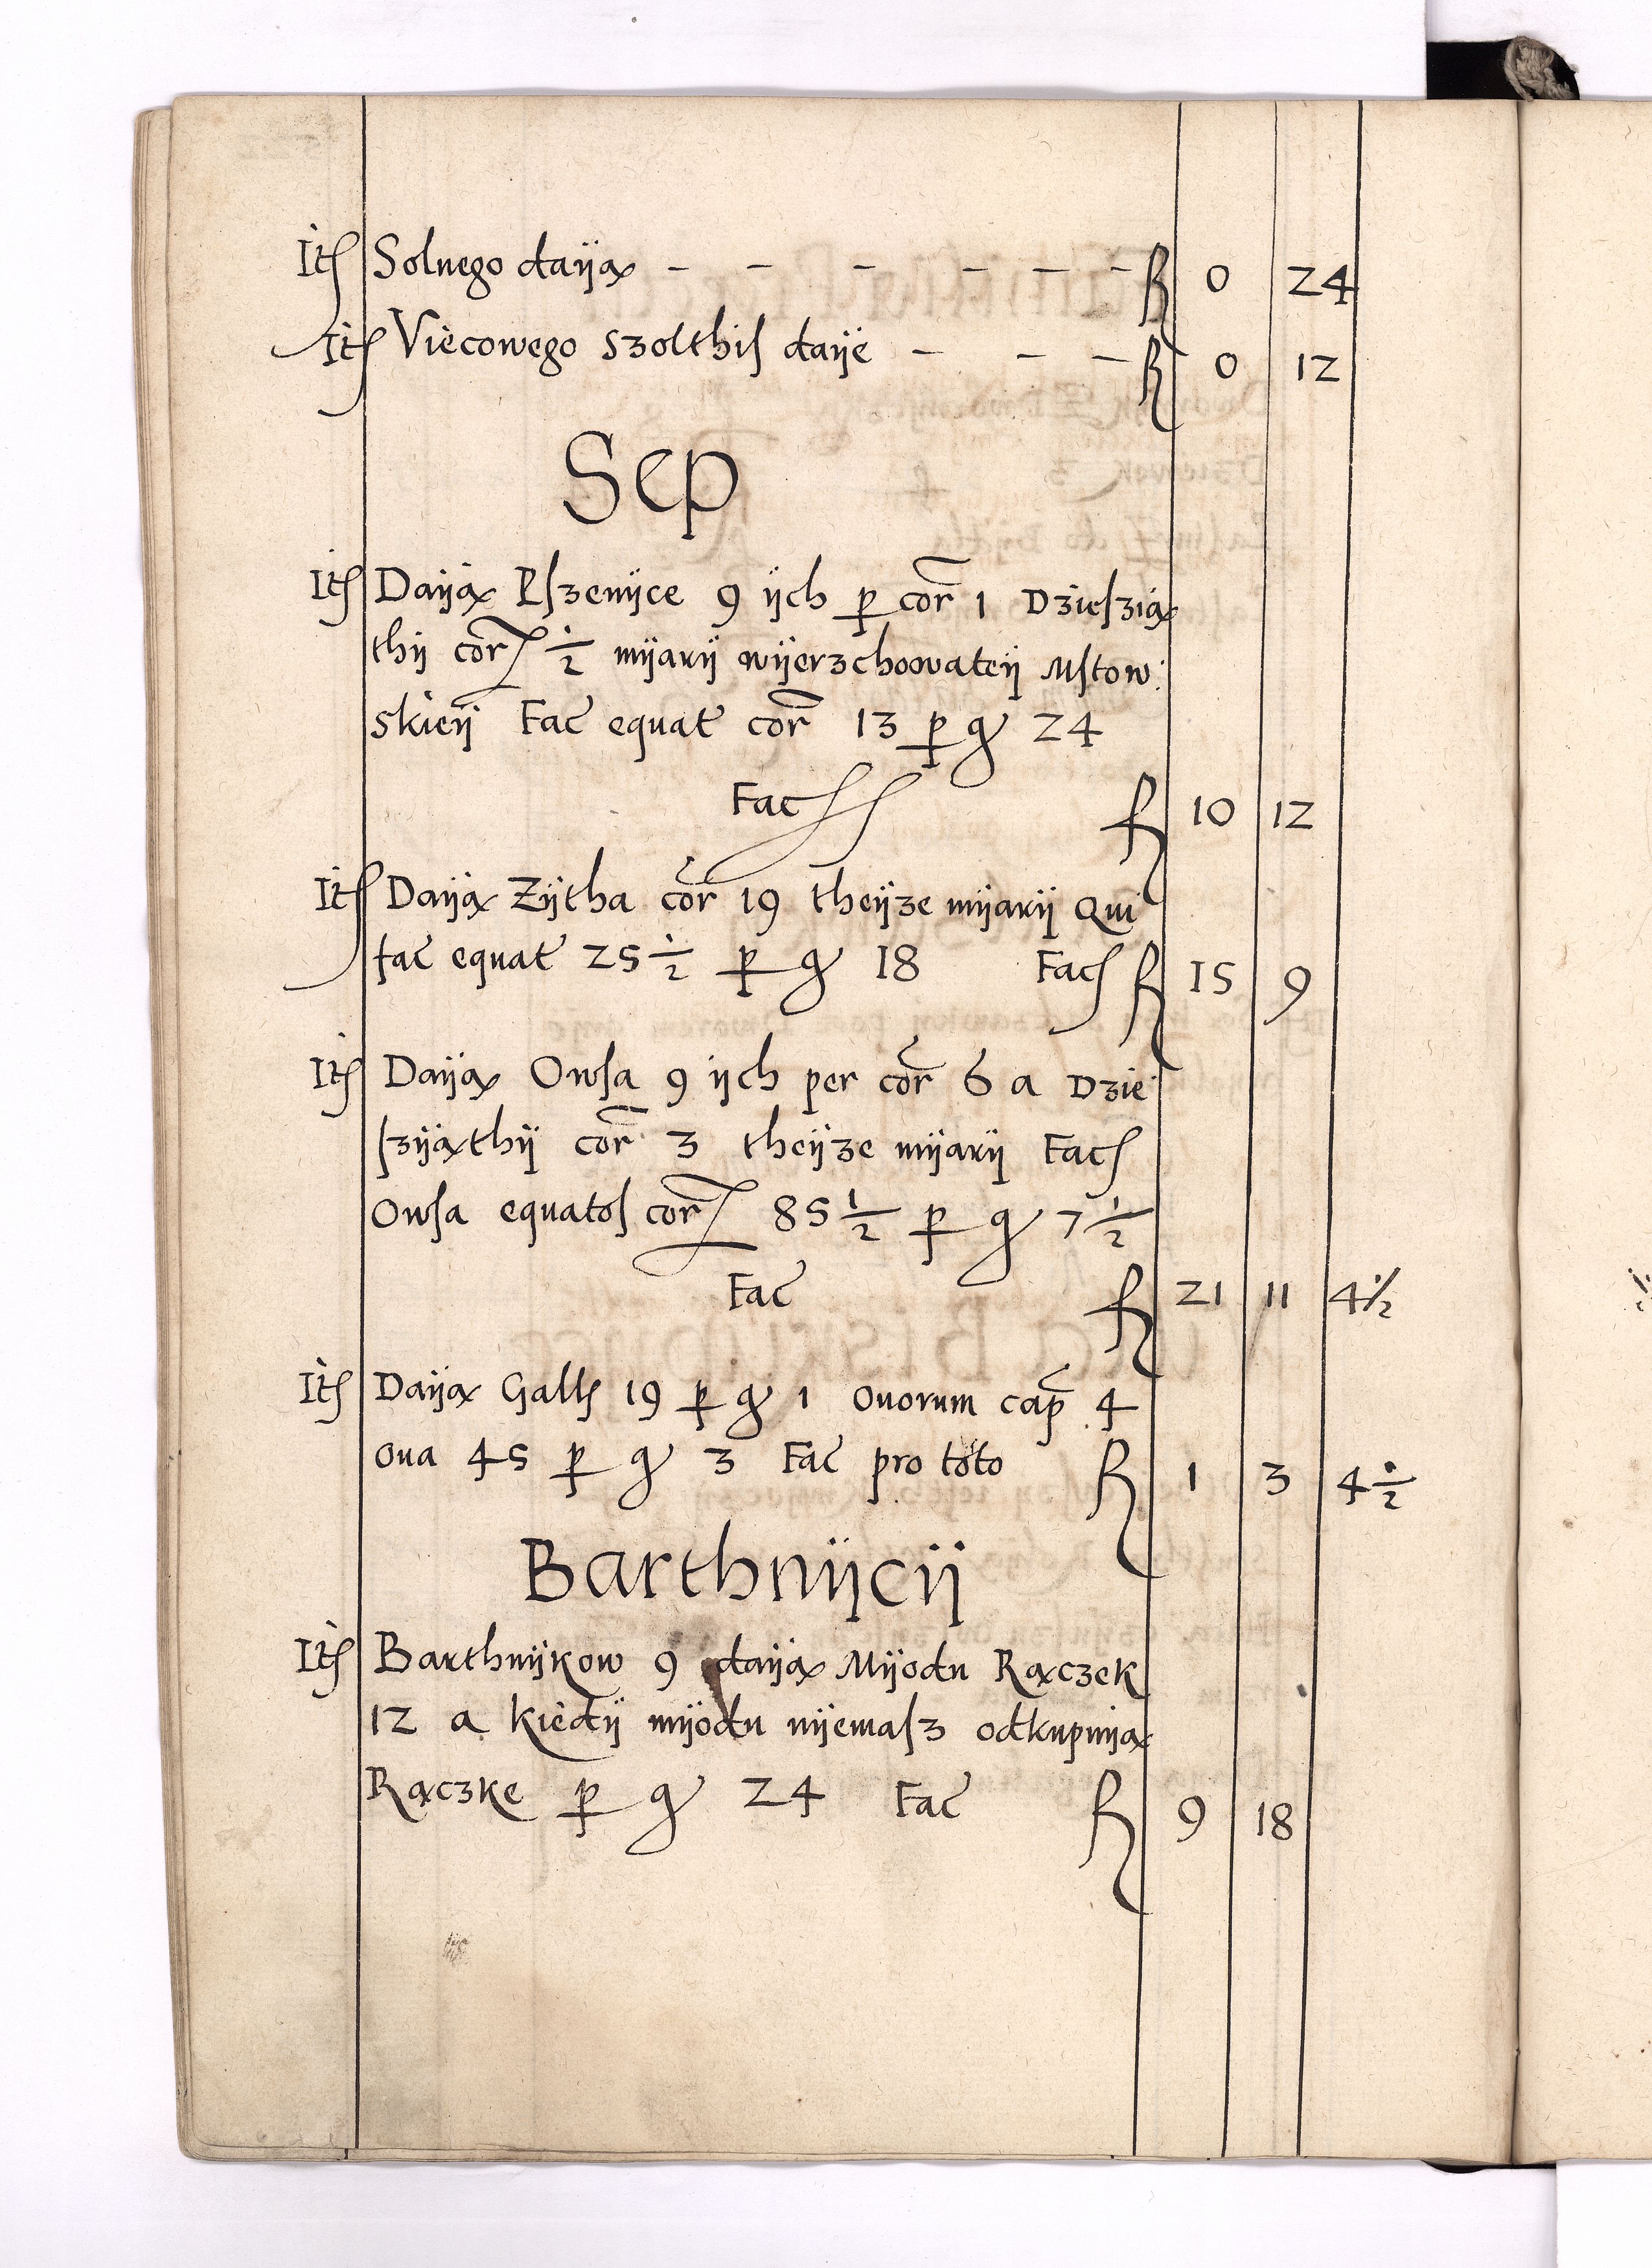 Itē Solnego daiją – – – – – – fl 0 24
Itē Viecowego szolthiſ daije – – – fl 0 12
Sep
Itē Daiją Pſzenijce 9 ijch p cor̄ 1 Dzieſzią
thij cor̄ ½ mijarij wijerzchowateij Mſtow
skieij Fac̄ equat̄ cor̄ 13 p gͬ 24
Fac̄ fl 10 12
Itē Daiją Zijtha cor̄ 19 theijze mijarij Qui
fac̄ equat̄ 25½ p gͬ 18 Fac̄ fl 15 9
Itē Daiją Owſa 9 ijch per cor̄ 6 a Dzie
ſzijąthij cor̄ 3 theijze mijarij Fac̄
Owſa equatoſ cor̄ 85½ p gͬ 7½
Fac̄ fl 21 11 4½
Itē Daiją Gallſ 19 p gͬ 1 Ouorum cap̄ 4
oua 45 p gͬ 3 Fac̄ pro toto fl 1 3 4½
Barthnijcij
Itē Barthnijkow 9 daiją Mijodu Rączek
12 a kiedij mijodu nijemaſz odkupują
Rączke p gͬ 24 Fac̄ fl 9 18